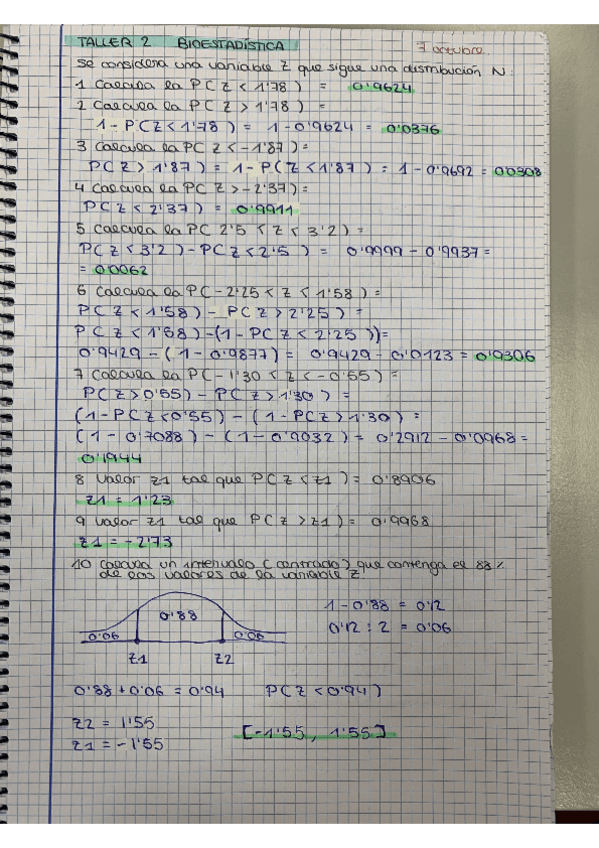 TALLER 2 BIOESTADÍSTICA
7 octubre
Se considera una variable Z que sigue una distribución N:
1 Calcula la P(Z < 1'78) = 0'9624
2 Calcula la P(Z > 1'78) =
1 - P(Z < 1'78) = 1 - 0'9624 = 0'0376
3 Calcula la P(Z < -1'87) =
P(Z > 1'87) = 1 - P(Z < 1'87) = 1 - 0'9692 = 0'0308
4 Calcula la P(Z > -2'37) =
P(Z < 2'37) = 0'9911
5 Calcula la P(2'5 < Z < 3'2) =
P(Z < 3'2) - P(Z < 2'5) = 0'9999 - 0'9937 =
= 0'0062
6 Calcula la P(-2'25 < Z < 1'58) =
P(Z < 1'58) - P(Z > 2'25) =
P(Z < 1'58) - (1 - P(Z < 2'25)) =
0'9429 - (1 - 0'9877) = 0'9429 - 0'0123 = 0'9306
7 Calcula la P(-1'30 < Z < -0'55) =
P(Z > 0'55) - P(Z > 1'30) =
(1 - P(Z < 0'55) - (1 - P(Z > 1'30) =
(1 - 0'7088) - (1 - 0'9032) = 0'2912 - 0'0968 =
0'1944
8 Valor z1 tal que P(Z < z1) = 0'8906
z1 = 1'23
9 Valor z1 tal que P(Z > z1) = 0'9968
z1 = -2'73
10 Calcula un intervalo (centrado) que contenga el 88%
de los valores de la variable Z.
0'88
1 - 0'88 = 0'12
0'06 0'06
0'12 : 2 = 0'06
z1 z2
0'88 + 0'06 = 0'94 P(Z < 0'94)
z2 = 1'55
z1 = -1'55
[-1'55, 1'55]